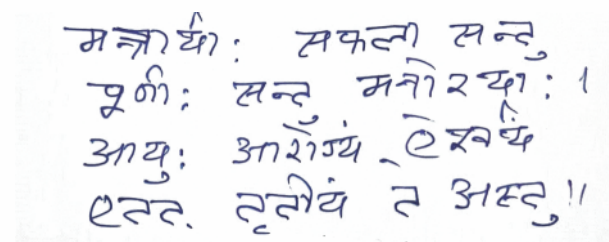 मन्त्रार्थाः सफला सन्तु
पूर्णाः सन्तु मनोरथाः ।
आयुः आरोग्यं ऐश्वर्यं
एतत् तृतीयं ते अस्तु ॥